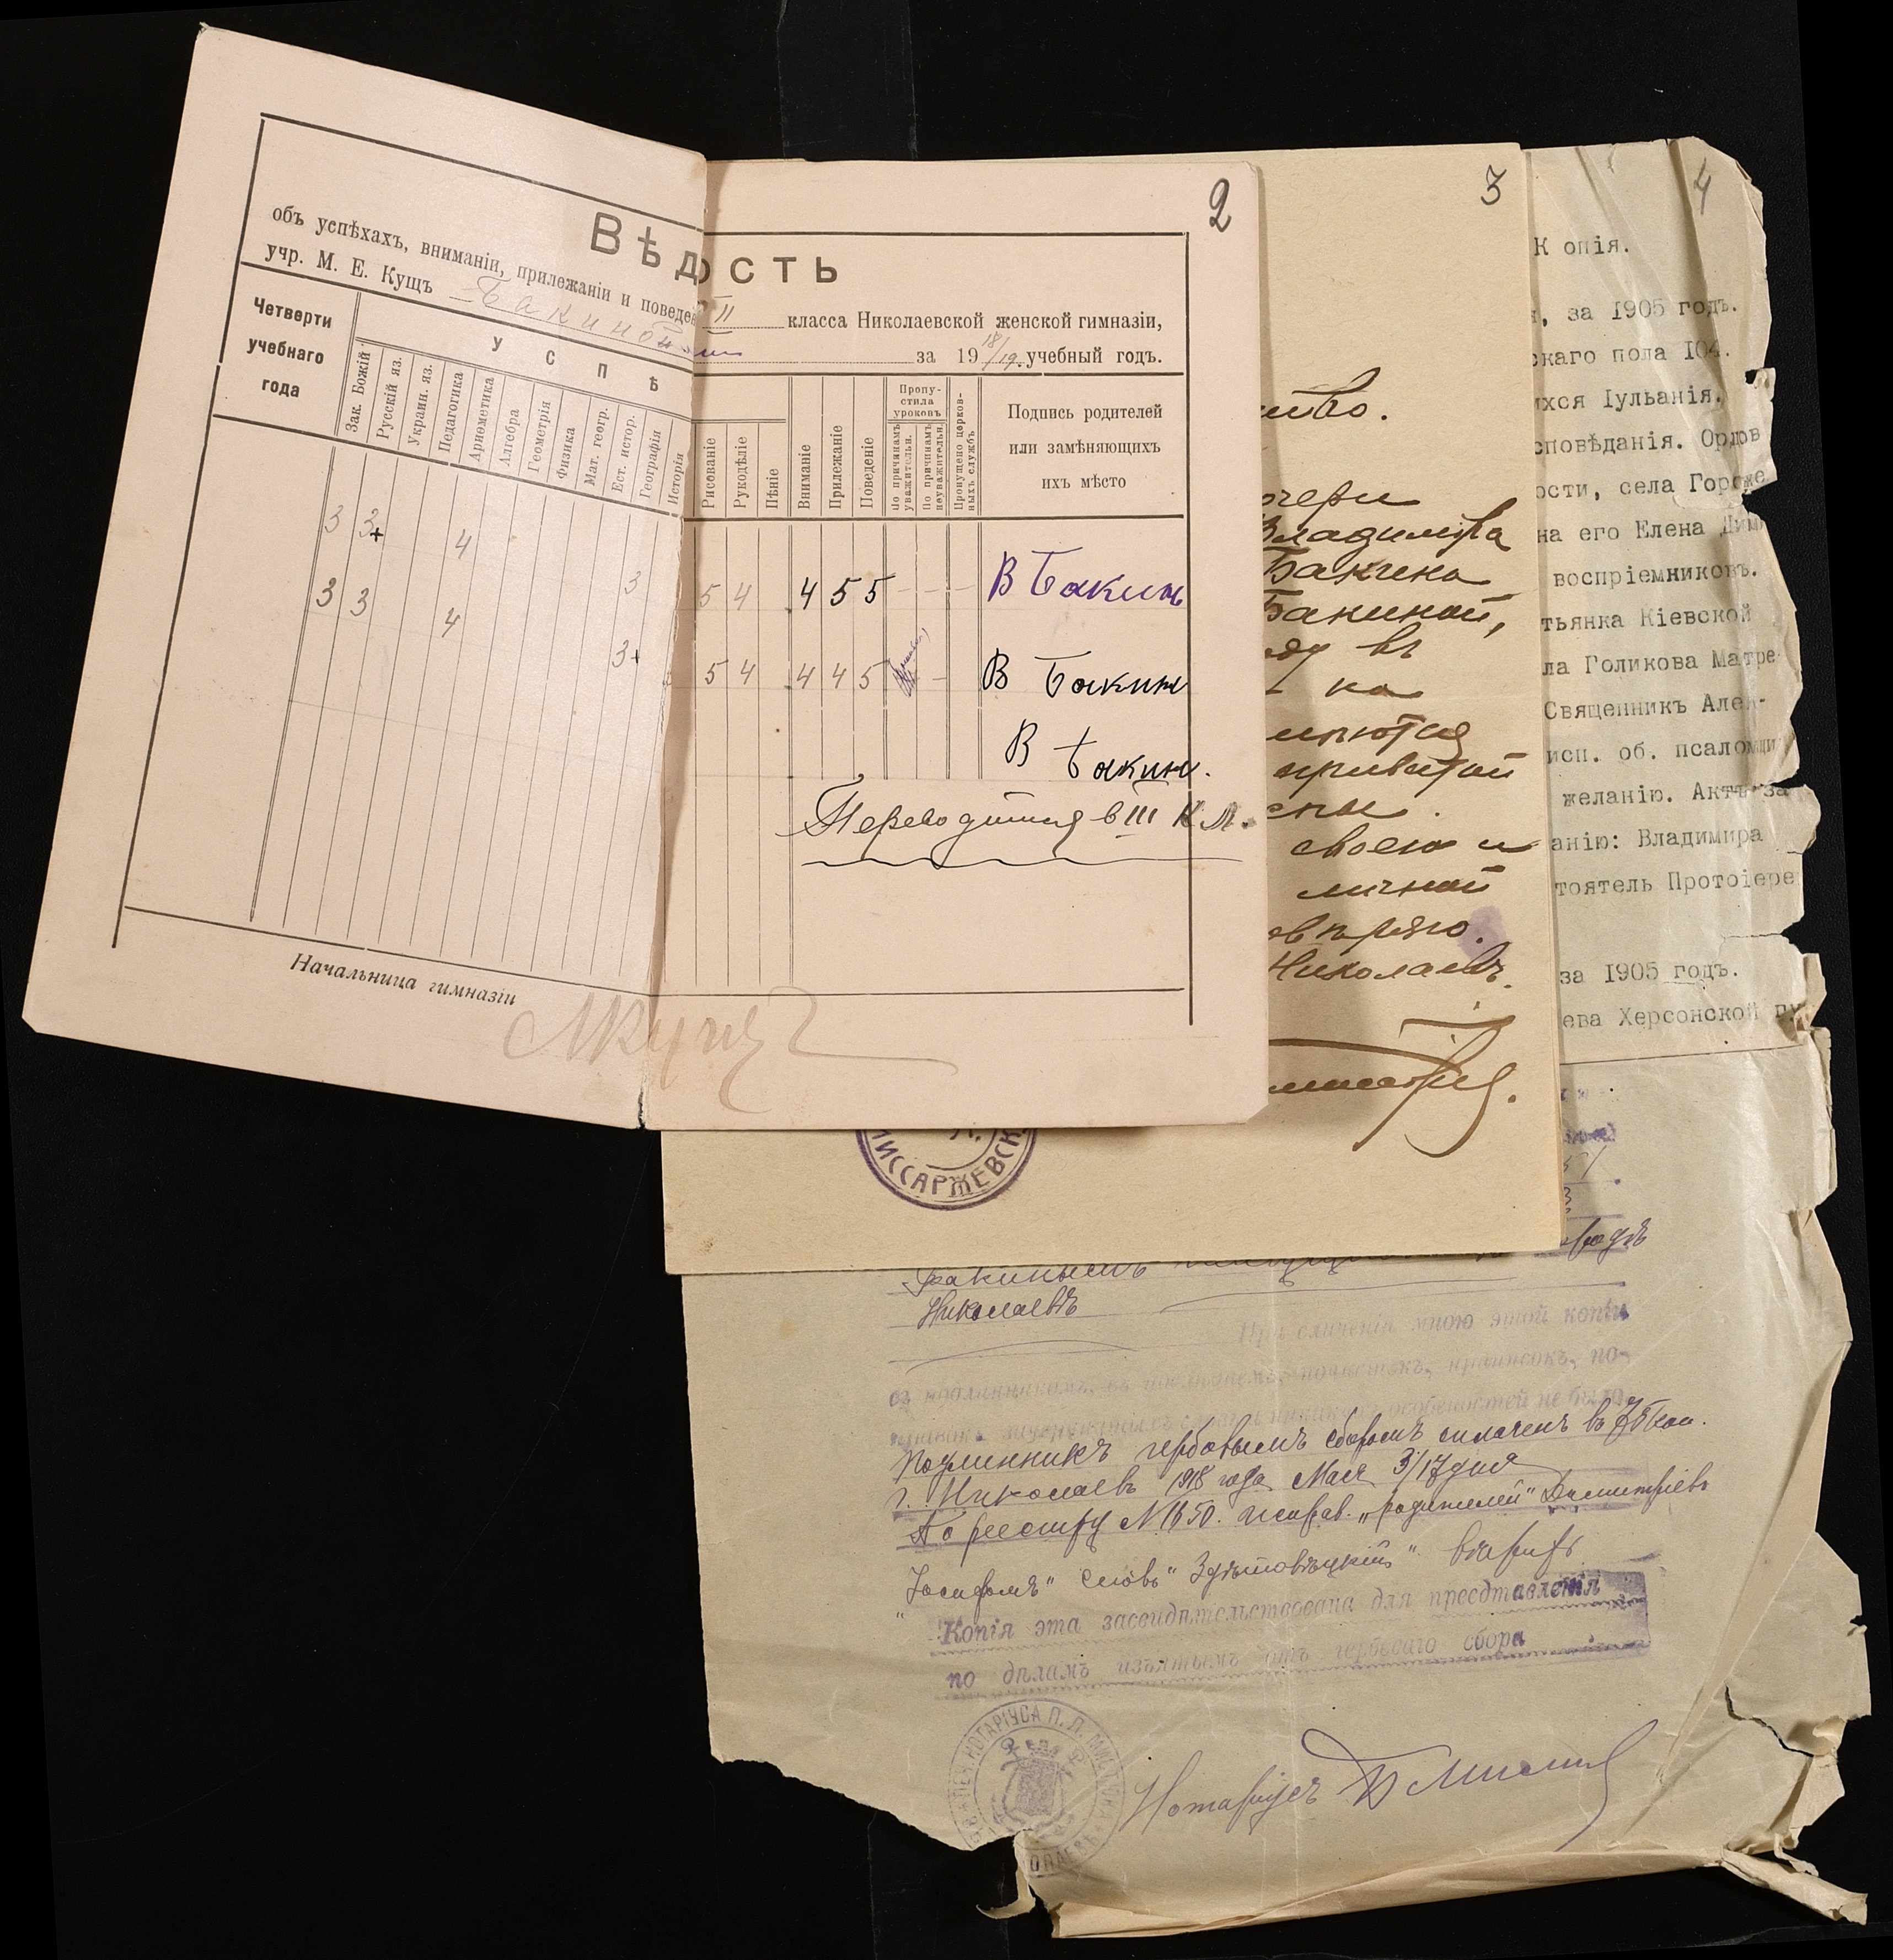 2
ВѢДОСТЬ
объ успѣхахъ, вниманіи, прилежаніи и поведен II класса Николаевской женской гимназіи,
учр. М. Е. Кущъ Бакиной за 1918/19 учебный годъ.
Четверти учебнаго года
У С П Ѣ
Зак. Божій
Русскій яз.
Украин. яз.
Педагогика
Ариѳметика
Алгебра
Геометрія
Физика
Мат. геогр.
Ест. истор.
Географіи
Исторія
Рисованіе
Рукодѣліе
Пѣніе
Вниманіе
Прилежаніе
Поведеніе
Пропустила уроковъ
По причинамъ уважительн.
По причинамъ неуважительн.
Пропущено церковныхъ службъ
Подпись родителей
или замѣняющихъ
ихъ мѣсто
3 3+ 4 3 5 4 4 5 5 — — — В Бакинъ
3 3 4 3+ 5 4 4 4 5 — В Бакин
В Бакин.
Переводится в III кл.
Начальница гимназіи
3
ство.
очери
Владиміра
Бакина
Бакиной,
въ
на
имѣются
своею и
личной
Николаевъ.
МИССАРЖЕВСК
4
Копія.
, за 1905 годъ.
скаго пола 104.
ихся Іульанія.
сповѣданія. Орлов
ости, села Горож
на его Елена Дим
воспріемниковъ.
тьянка Кіевской
ла Голикова Матре
Священникъ Алек-
исп. об. псаломщи
желанію. Актъ за
анію: Владимира
тоятель Протоіере
за 1905 годъ.
ева Херсонской гу
Бакинымъ городѣ
Николаевѣ
При сличеніи мною этой копіи
съ подлинникомъ, въ послѣднемъ почистокъ, приписокъ, по-
особенностей не было.
Подлинникъ гербовымъ сборомъ оплаченъ въ 75 коп.
г. Николаевъ 1918 года Мая 3/17 дня
По реестру N 1650. исправ. „родителей" Димитріевъ
"Іосифомъ" словъ "
Копія эта засвидѣтельствована для представленія
по дѣламъ изъятымъ отъ гербоваго сбора
НОТАРІУСА П. Л.
Нотаріусъ